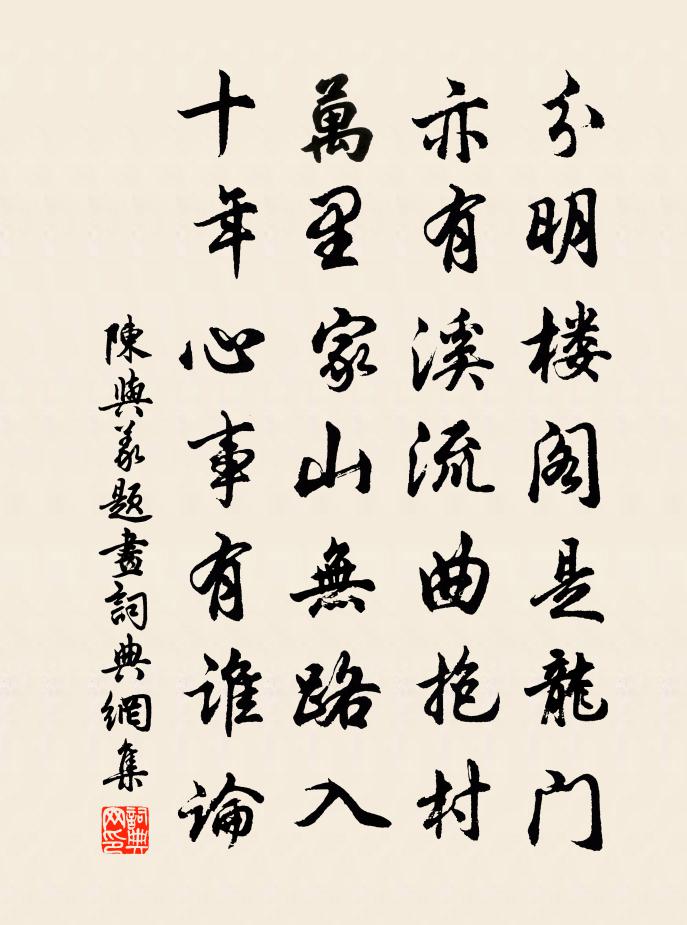 分明楼阁是龍门
亦有溪流曲抱村
萬里家山無路入
十年心事有谁论
陳與義題畫詞典網集
詞典网印